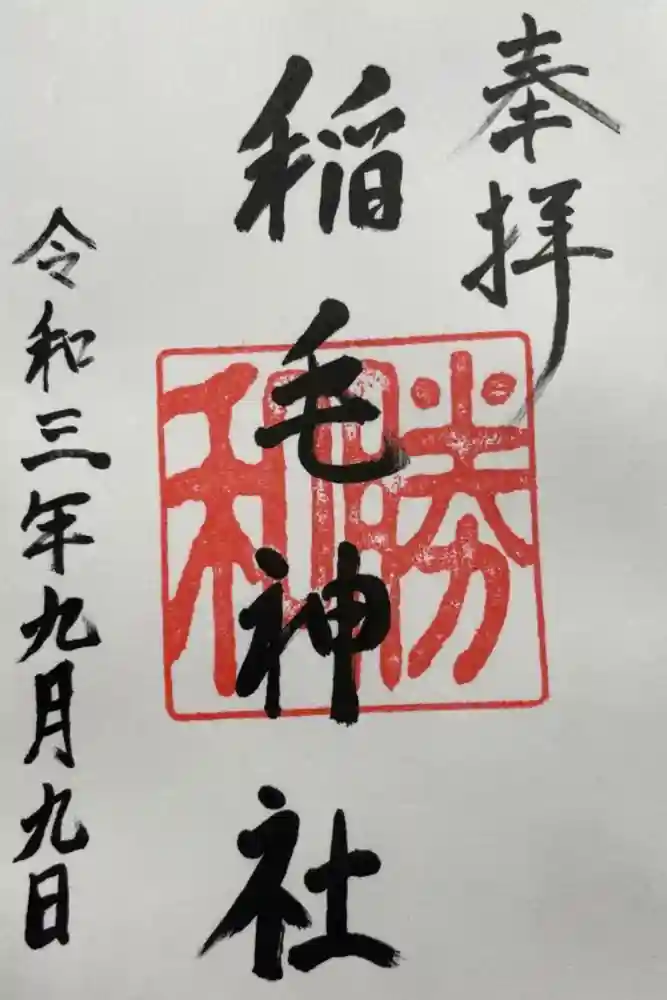 奉拝
稲毛神社
令和三年九月九日